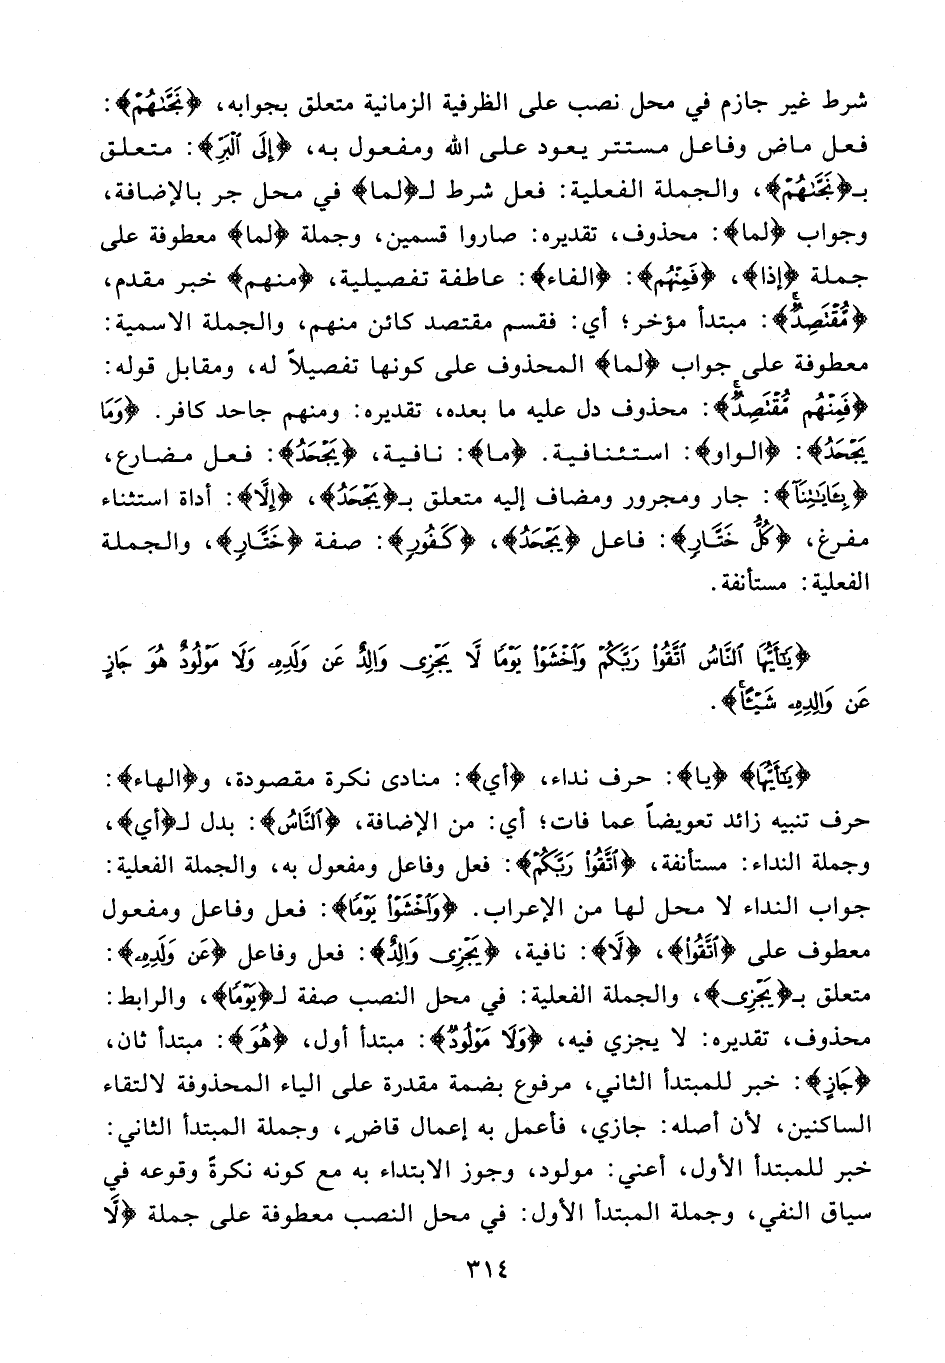 شرط غير جازم في محل نصب على الظرفية الزمانية متعلق بجوابه، ﴿نَجَّىٰهُمْ﴾:
فعل ماض وفاعل مستتر يعود على الله ومفعول به، ﴿إِلَى ٱلْبَرِّ﴾: متعلق
بـ﴿نَجَّىٰهُمْ﴾، والجملة الفعلية: فعل شرط لـ﴿لما﴾ في محل جر بالإضافة،
وجواب ﴿لما﴾: محذوف، تقديره: صاروا قسمين، وجملة ﴿لما﴾ معطوفة على
جملة ﴿إذا﴾، ﴿فَمِنْهُم﴾: ﴿الفاء﴾: عاطفة تفصيلية، ﴿منهم﴾ خبر مقدم،
﴿مُّقْتَصِدٌۚ﴾: مبتدأ مؤخر؛ أي: فقسم مقتصد كائن منهم، والجملة الاسمية:
معطوفة على جواب ﴿لما﴾ المحذوف على كونها تفصيلاً له، ومقابل قوله:
﴿فَمِنْهُم مُّقْتَصِدٌۚ﴾: محذوف دل عليه ما بعده، تقديره: ومنهم جاحد كافر. ﴿وَمَا
يَجْحَدُ﴾: ﴿الواو﴾: استئنافية. ﴿ما﴾: نافية، ﴿يَجْحَدُ﴾: فعل مضارع،
﴿بِـَٔايَـٰتِنَآ﴾: جار ومجرور ومضاف إليه متعلق بـ﴿يَجْحَدُ﴾، ﴿إِلَّا﴾: أداة استثناء
مفرغ، ﴿كُلُّ خَتَّارٍ﴾: فاعل ﴿يَجْحَدُ﴾، ﴿كَفُورٍ﴾: صفة ﴿خَتَّارٍ﴾، والجملة
الفعلية: مستأنفة.
﴿يَـٰٓأَيُّهَا ٱلنَّاسُ ٱتَّقُوا۟ رَبَّكُمْ وَٱخْشَوْا۟ يَوْمًا لَّا يَجْزِى وَالِدٌ عَن وَلَدِهِۦ وَلَا مَوْلُودٌ هُوَ جَازٍ
عَن وَالِدِهِۦ شَيْـًٔاۚ﴾.
﴿يَـٰٓأَيُّهَا﴾ ﴿يا﴾: حرف نداء، ﴿أي﴾: منادى نكرة مقصودة، و﴿الهاء﴾:
حرف تنبيه زائد تعويضاً عما فات؛ أي: من الإضافة، ﴿ٱلنَّاسُ﴾: بدل لـ﴿أي﴾،
وجملة النداء: مستأنفة، ﴿ٱتَّقُوا۟ رَبَّكُمْ﴾: فعل وفاعل ومفعول به، والجملة الفعلية:
جواب النداء لا محل لها من الإعراب. ﴿وَٱخْشَوْا۟ يَوْمًا﴾: فعل وفاعل ومفعول
معطوف على ﴿ٱتَّقُوا۟﴾، ﴿لَّا﴾: نافية، ﴿يَجْزِى وَالِدٌ﴾: فعل وفاعل ﴿عَن وَلَدِهِۦ﴾:
متعلق بـ﴿يَجْزِى﴾، والجملة الفعلية: في محل النصب صفة لـ﴿يَوْمًا﴾، والرابط:
محذوف، تقديره: لا يجزي فيه، ﴿وَلَا مَوْلُودٌ﴾: مبتدأ أول، ﴿هُوَ﴾: مبتدأ ثان،
﴿جَازٍ﴾: خبر للمبتدأ الثاني، مرفوع بضمة مقدرة على الياء المحذوفة لالتقاء
الساكنين، لأن أصله: جازي، فأعمل به إعمال قاضٍ، وجملة المبتدأ الثاني:
خبر للمبتدأ الأول، أعني: مولود، وجوز الابتداء به مع كونه نكرةً وقوعه في
سياق النفي، وجملة المبتدأ الأول: في محل النصب معطوفة على جملة ﴿لَّا
٣١٤